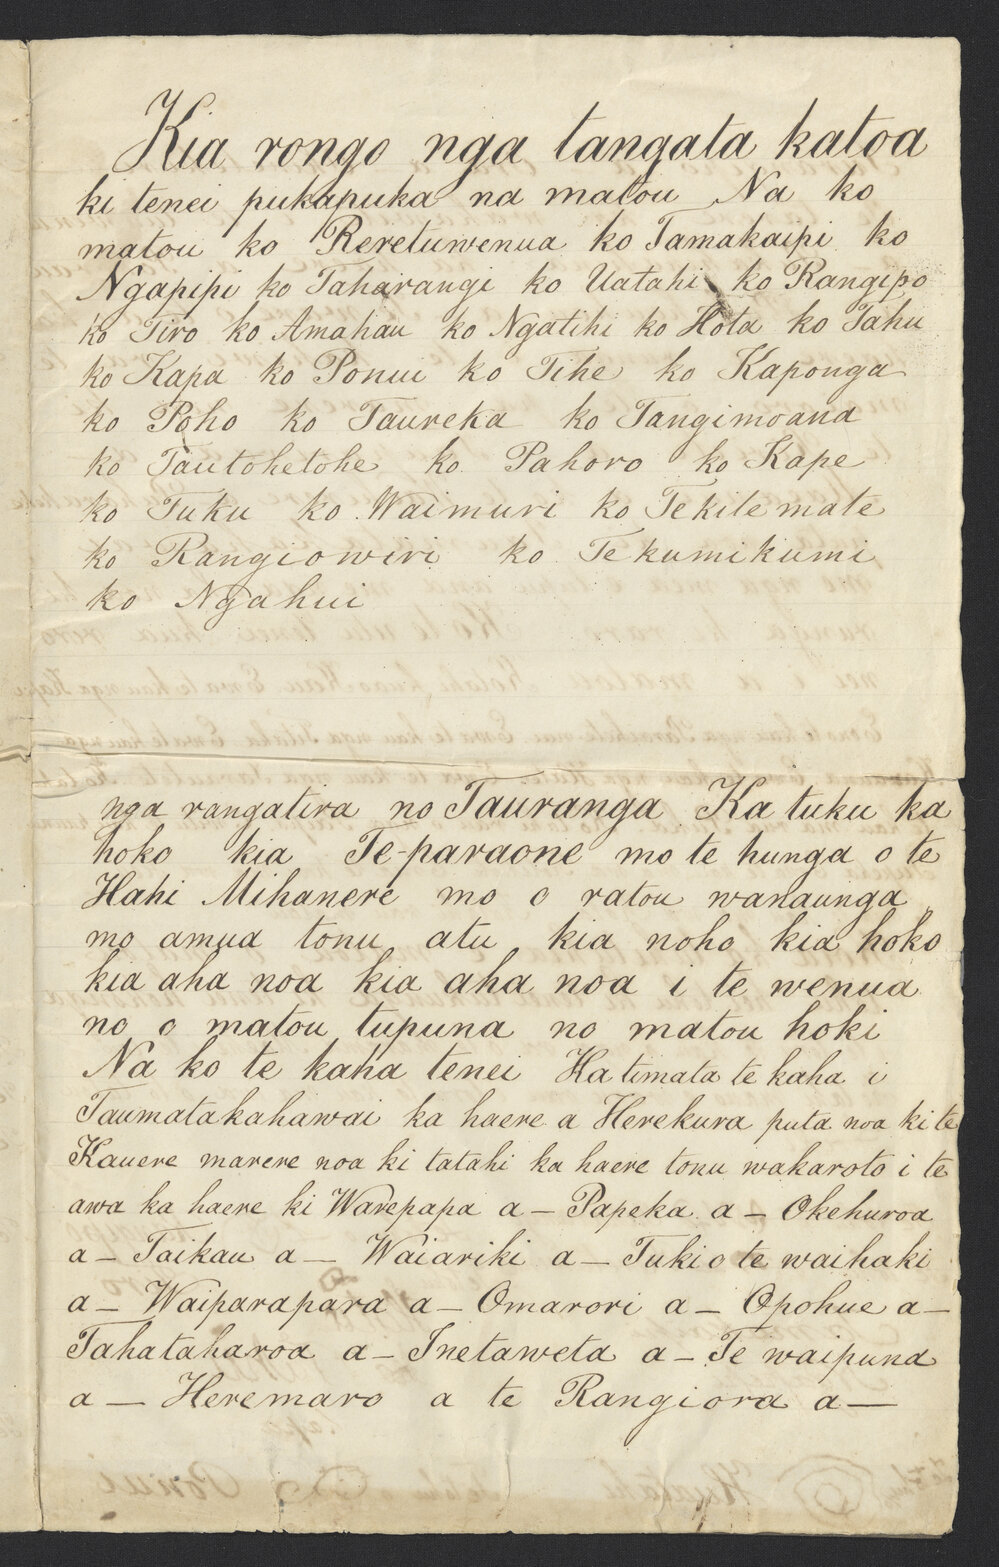 Kia rongo nga tangata katoa
ki tenei pukapuka na matou Na ko
matou ko Reretuwenua ko Tamakaipi ko
Ngapipi ko Taharangi ko Uatahi ko Rangipo
ko Tiro ko Amahau ko Ngatihi ko Hota ko Tahu
ko Kapa ko Ponui ko Tihe ko Kaponga
ko Poho ko Taureka ko Tangimoana
ko Tautohetohe ko Pahoro ko Kape
ko Tuku ko Waimuri ko Te kite mate
ko Rangiowiri ko Te kumikumi
ko Ngahui
nga rangatira no Tauranga Ka tuku ka
hoko kia Te-paraone mo te hunga o te
Hahi Mihanere mo o ratou wanaunga
mo amua tonu atu kia noho kia hoko
kia aha noa kia aha noa i te wenua
no o matou tupuna no matou hoki
Na ko te kaha tenei Ka timata te kaha i
Taumatakahawai ka haere a Herekura puta noa ki te
Kauere marere noa ki tatahi ka haere tonu wakaroto i te
awa ka haere ki Warepapa a- Papeka a- Okehuroa
a- Taikau a- Waiariki a- Tuki o te waihaki
a- Waiparapara a- Omarori a- Opohue a-
Tahataharoa a- Inetaweta a- Te waipuna
a- Heremaro a te Rangiora a-